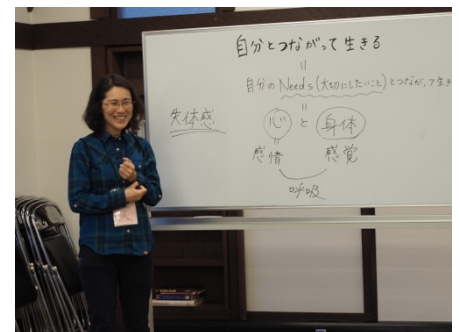 自分とつながって生きる
=
自分のNeeds(大切にしたいこと)とつながって生き
=
失体感
心と身体
=
感情 感覚
呼吸